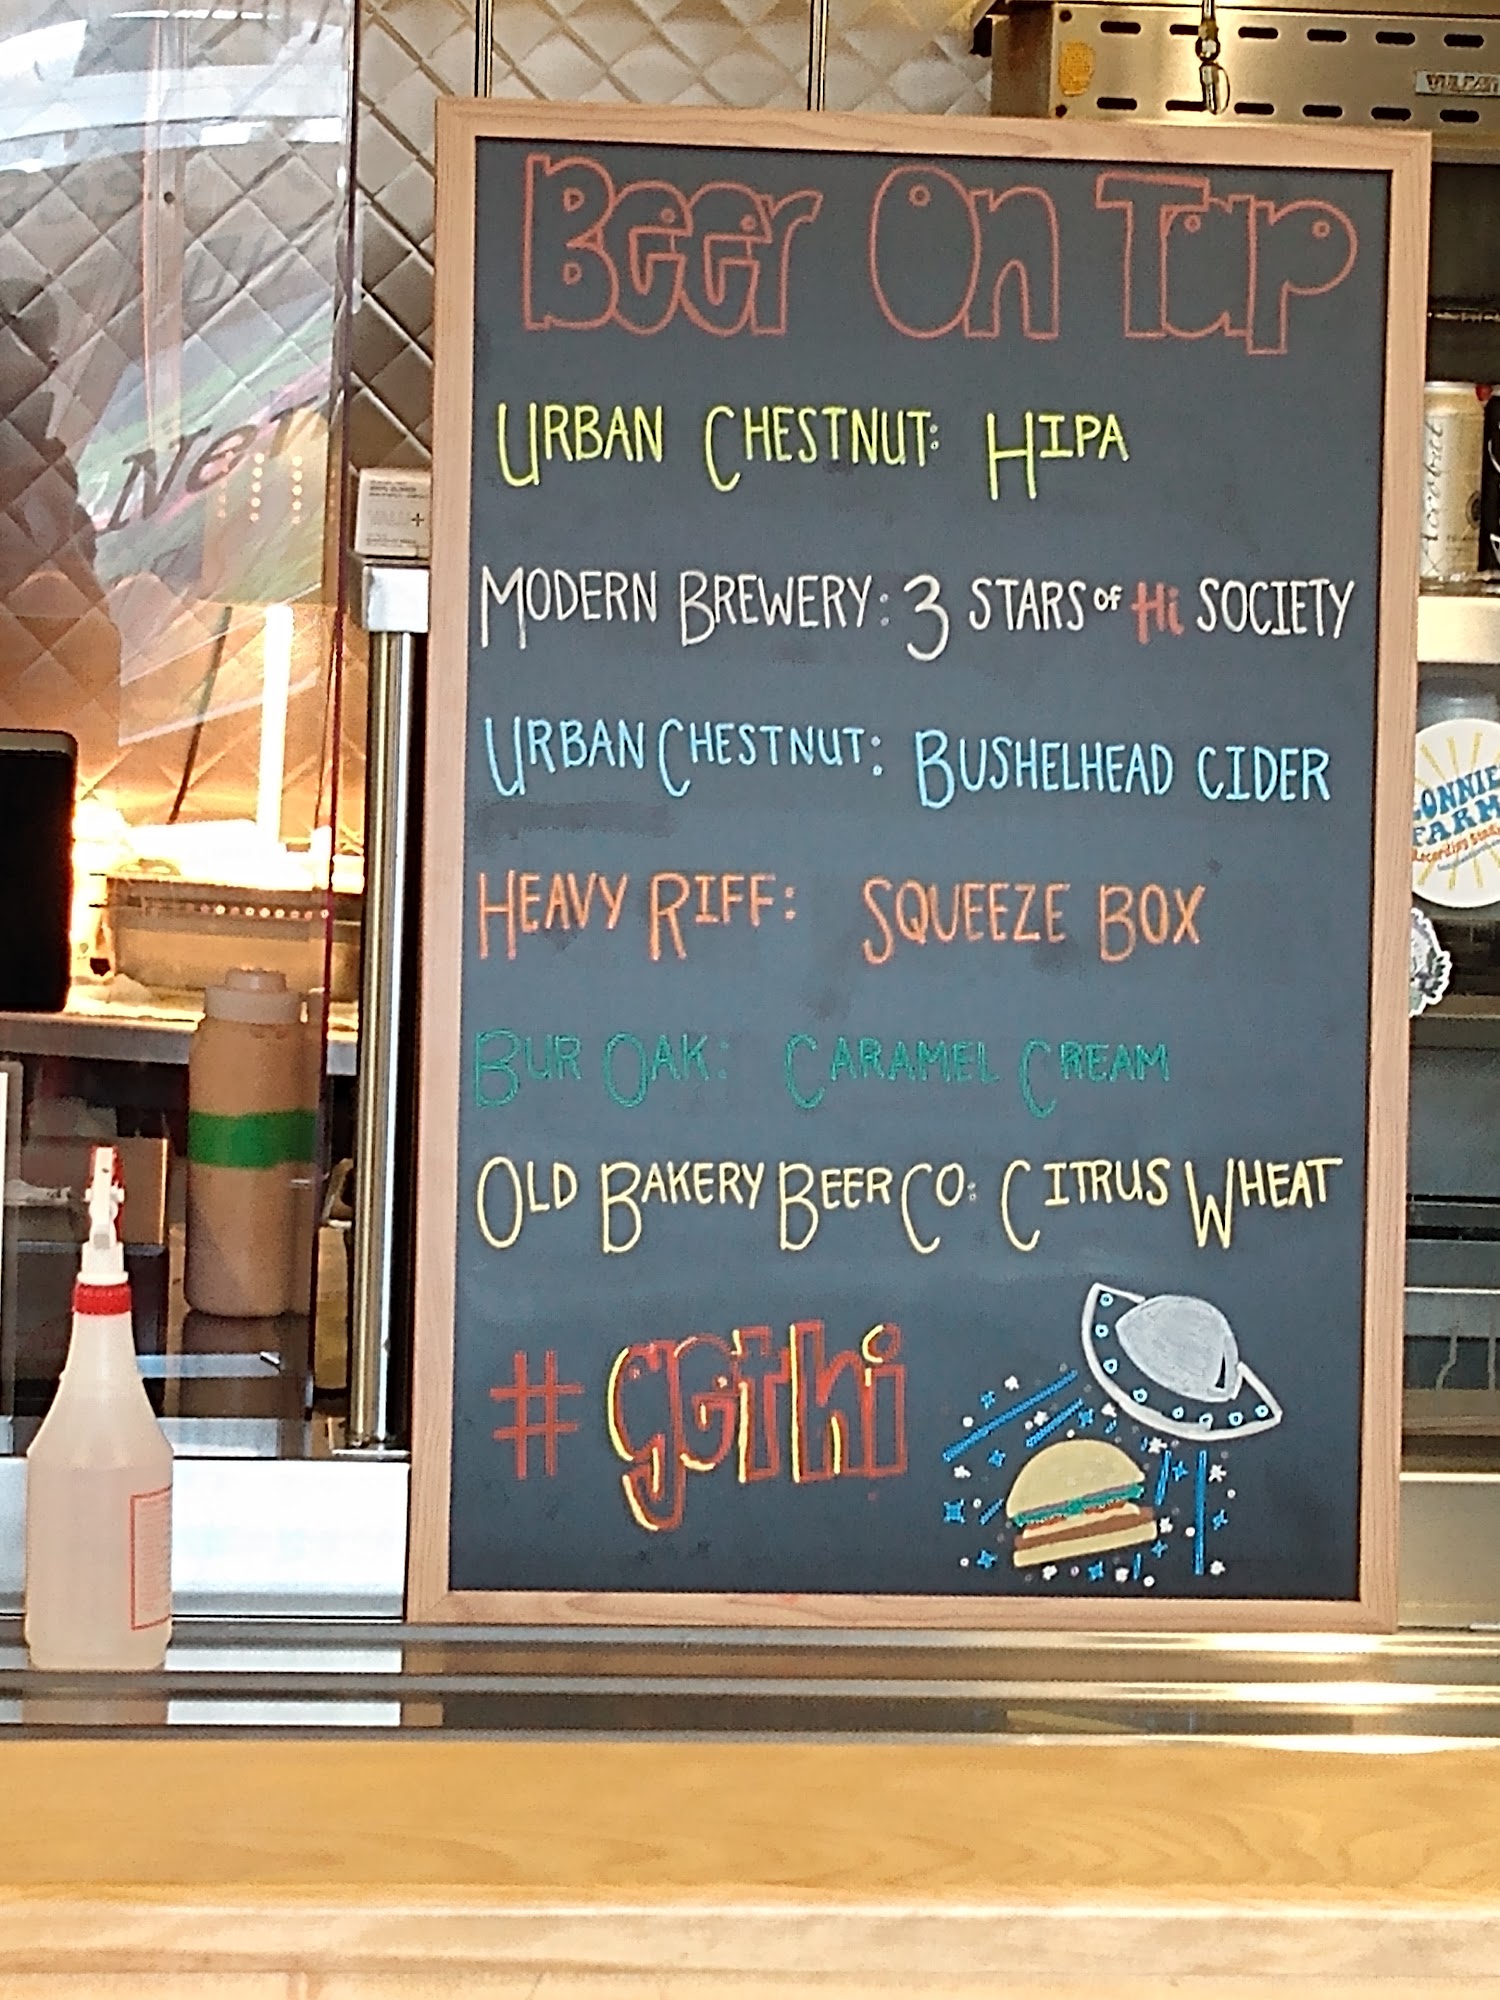 Beer On Tap
URBAN CHESTNUT: HIPA
MODERN BREWERY: 3 STARS OF Hi SOCIETY
URBAN CHESTNUT: BUSHELHEAD CIDER
HEAVY RIFF: SQUEEZE BOX
BUR OAK: CARAMEL CREAM
OLD BAKERY BEER CO: CITRUS WHEAT
#gothi
VULCAN
VALU+
FARM